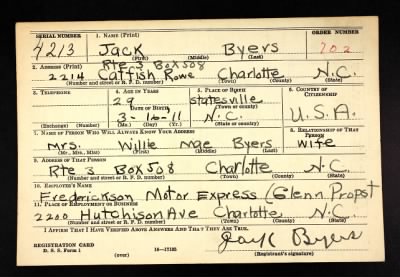 SERIAL NUMBER 1. NAME (Print) ORDER NUMBER
4213 Jack Byers 702
(First) (Middle) (Last)
2. ADDRESS (Print) Rte 3 Box 508
2214 Catfish Rowe Charlotte N.C.
(Number and street or R. F. D. number) (Town) (County) (State)
3. TELEPHONE 4. AGE IN YEARS 5. PLACE OF BIRTH 6. COUNTRY OF CITIZENSHIP
29 statesville
DATE OF BIRTH (Town or county)
3-16-11 N.C. U.S.A.
(Exchange) (Number) (Mo.) (Day) (Yr.) (State or country)
7. NAME OF PERSON WHO WILL ALWAYS KNOW YOUR ADDRESS 8. RELATIONSHIP OF THAT PERSON
Mrs. Willie Mae Byers wife
(Mr., Mrs., Miss) (First) (Middle) (Last)
9. ADDRESS OF THAT PERSON
Rte 3 Box 508 Charlotte N.C.
(Number and street or R. F. D. number) (Town) (County) (State)
10. EMPLOYER'S NAME
Frederickson Motor Express (Glenn Propst
11. PLACE OF EMPLOYMENT OR BUSINESS
2200 Hutchison Ave Charlotte N.C.
(Number and street or R. F. D. number) (Town) (County) (State)
I AFFIRM THAT I HAVE VERIFIED ABOVE ANSWERS AND THAT THEY ARE TRUE.
REGISTRATION CARD
D. S. S. Form 1 16—17105 Jack Byers
(over) (Registrant's signature)